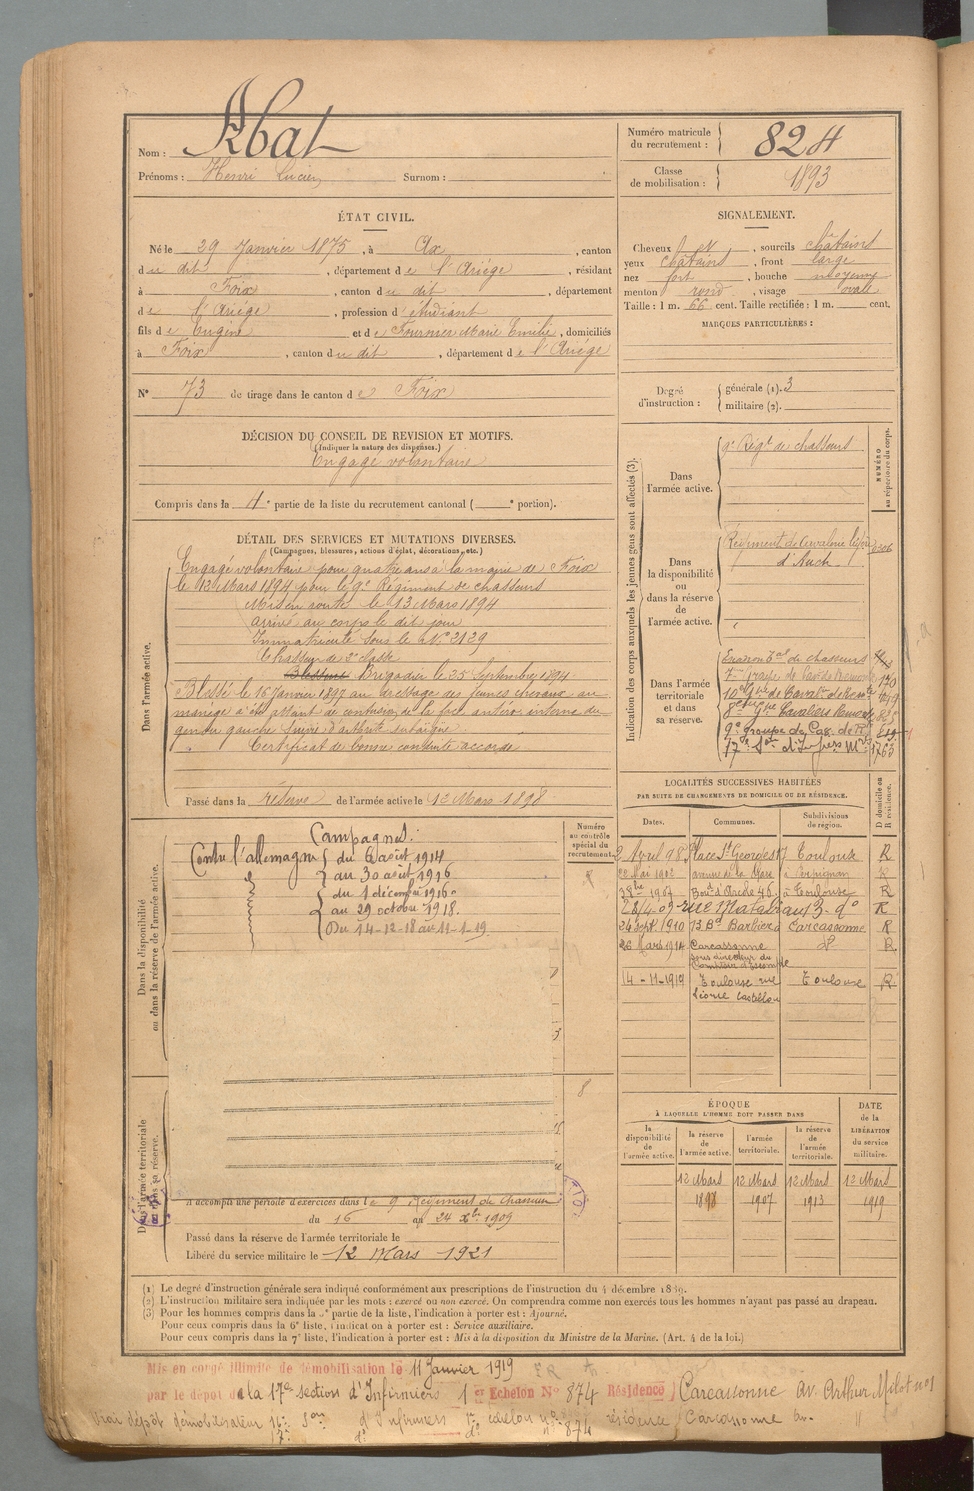 Nom : Abat
Prénoms : Henri Lucien Surnom :
Numéro matricule du recrutement : 824
Classe de mobilisation : 1893
ÉTAT CIVIL.
Né le 29 Janvier 1875, à Ax, canton
du dit, département de l'Ariége, résidant
à Foix, canton du dit, département
de l'Ariége, profession d'étudiant
fils de Eugène et de Fournier Marie Emilie, domiciliés
à Foix, canton du dit, département de l'Ariége
N° 73 de tirage dans le canton de Foix
SIGNALEMENT.
Cheveux et, sourcils châtains
yeux châtains, front large
nez fort, bouche moyenne
menton rond, visage ovale
Taille : 1 m. 66 cent. Taille rectifiée : 1 m. cent.
MARQUES PARTICULIÈRES :
Degré d'instruction : générale (1). 3
militaire (2).
DÉCISION DU CONSEIL DE REVISION ET MOTIFS.
(Indiquer la nature des dispenses.)
Engagé volontaire
Compris dans la 4e partie de la liste du recrutement cantonal ( e portion).
DÉTAIL DES SERVICES ET MUTATIONS DIVERSES.
(Campagnes, blessures, actions d'éclat, décorations, etc.)
Dans l'armée active.
Engagé volontaire pour quatre ans à la mairie de Foix
le 13 Mars 1894 pour le 9e Régiment de chasseurs
Mis en route le 13 Mars 1894
arrivé au corps le dit jour
Immatriculé sous le N° 2129
Chasseur de 2e classe
Brigadier le 25 Septembre 1894
Blessé le 16 Janvier 1897 au dressage des jeunes chevaux au
manège a été atteint de contusion de la face antéro interne du
genou gauche suivie d'arthrite
Certificat de bonne conduite accordé
Passé dans la réserve de l'armée active le 12 Mars 1898
Indication des corps auxquels les jeunes gens sont affectés (3).
NUMÉRO au répertoire du corps.
Dans l'armée active.
9e Régt de chasseurs
Dans la disponibilité ou dans la réserve de l'armée active.
Régiment de Cavalerie légère
d'Auch
Dans l'armée territoriale et dans sa réserve.
Escadron tal de chasseurs
9e groupe de Cav. de
17e Son d'Infiers Mres 1763
Dans la disponibilité ou dans la réserve de l'armée active.
Numéro au contrôle spécial du recrutement.
Campagnes :
Contre l'allemagne du 6 août 1914
au 30 août 1916
du 1 décembre 1916
au 29 octobre 1918.
Du 14-12-18 au 11-1-19
LOCALITÉS SUCCESSIVES HABITÉES
PAR SUITE DE CHANGEMENTS DE DOMICILE OU DE RÉSIDENCE.
Dates. Communes. Subdivisions de région. D domicile ou R résidence.
2 Avril 98 Place St Georges 17 Toulouse R
22 Mai 1902 avenue de la Gare à Perpignan R
1907 Bould d'Arcole 46. à Toulouse R
28/4-09 rue Matabiau 3 do R
24 Sept 1910 73 Bd Barbès à Carcassonne R
26 Mars 1914 Carcassonne do R
sous directeur du
Comptoir d'Escompte
14-11-1919 Toulouse rue Toulouse R
Dans l'armée territoriale et dans sa réserve.
8
A accompli une période d'exercices dans le 9 Régiment de Chasseurs
du 16 au 24 Xbre 1909
Passé dans la réserve de l'armée territoriale le
Libéré du service militaire le 12 Mars 1921
ÉPOQUE
À LAQUELLE L'HOMME DOIT PASSER DANS
la disponibilité de l'armée active. la réserve de l'armée active. l'armée territoriale. la réserve de l'armée territoriale. DATE de la LIBÉRATION du service militaire.
12 Mars 12 Mars 12 Mars 12 Mars
1898 1907 1913 1919
(1) Le degré d'instruction générale sera indiqué conformément aux prescriptions de l'instruction du 4 décembre 1889.
(2) L'instruction militaire sera indiquée par les mots : exercé ou non exercé. On comprendra comme non exercés tous les hommes n'ayant pas passé au drapeau.
(3) Pour les hommes compris dans la 5e partie de la liste, l'indication à porter est : Ajourné.
Pour ceux compris dans la 6e liste, l'indication à porter est : Service auxiliaire.
Pour ceux compris dans la 7e liste, l'indication à porter est : Mis à la disposition du Ministre de la Marine. (Art. 4 de la loi.)
Mis en congé illimité de démobilisation le 11 Janvier 1919
par le dépôt de la 17e section d'Infirmiers 1er Echelon No 874 Résidence Carcassonne Av. Arthur
Vrai dépôt démobilisateur 16e Son d'Infirmiers 1er echelon no résidence Carcassonne Av.
17e do do no 874